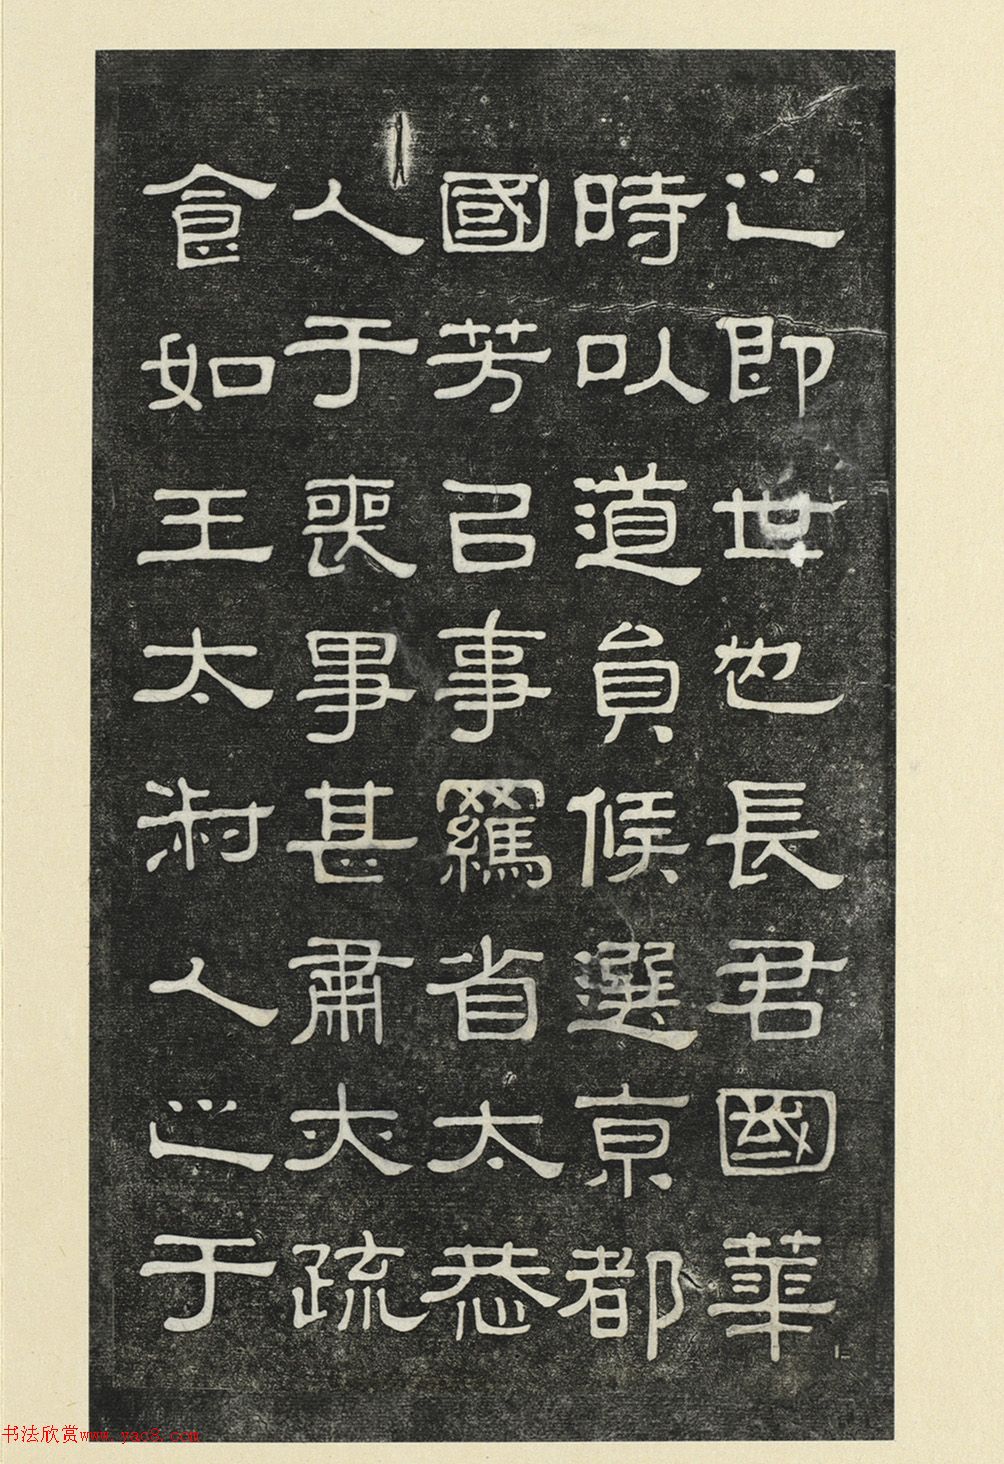 之即世也長君國華
時以道員候選京都
國芳以事羈省太恭
人于喪事甚肅夫疏
食如王太淑人之于
书法欣赏www.yac8.com